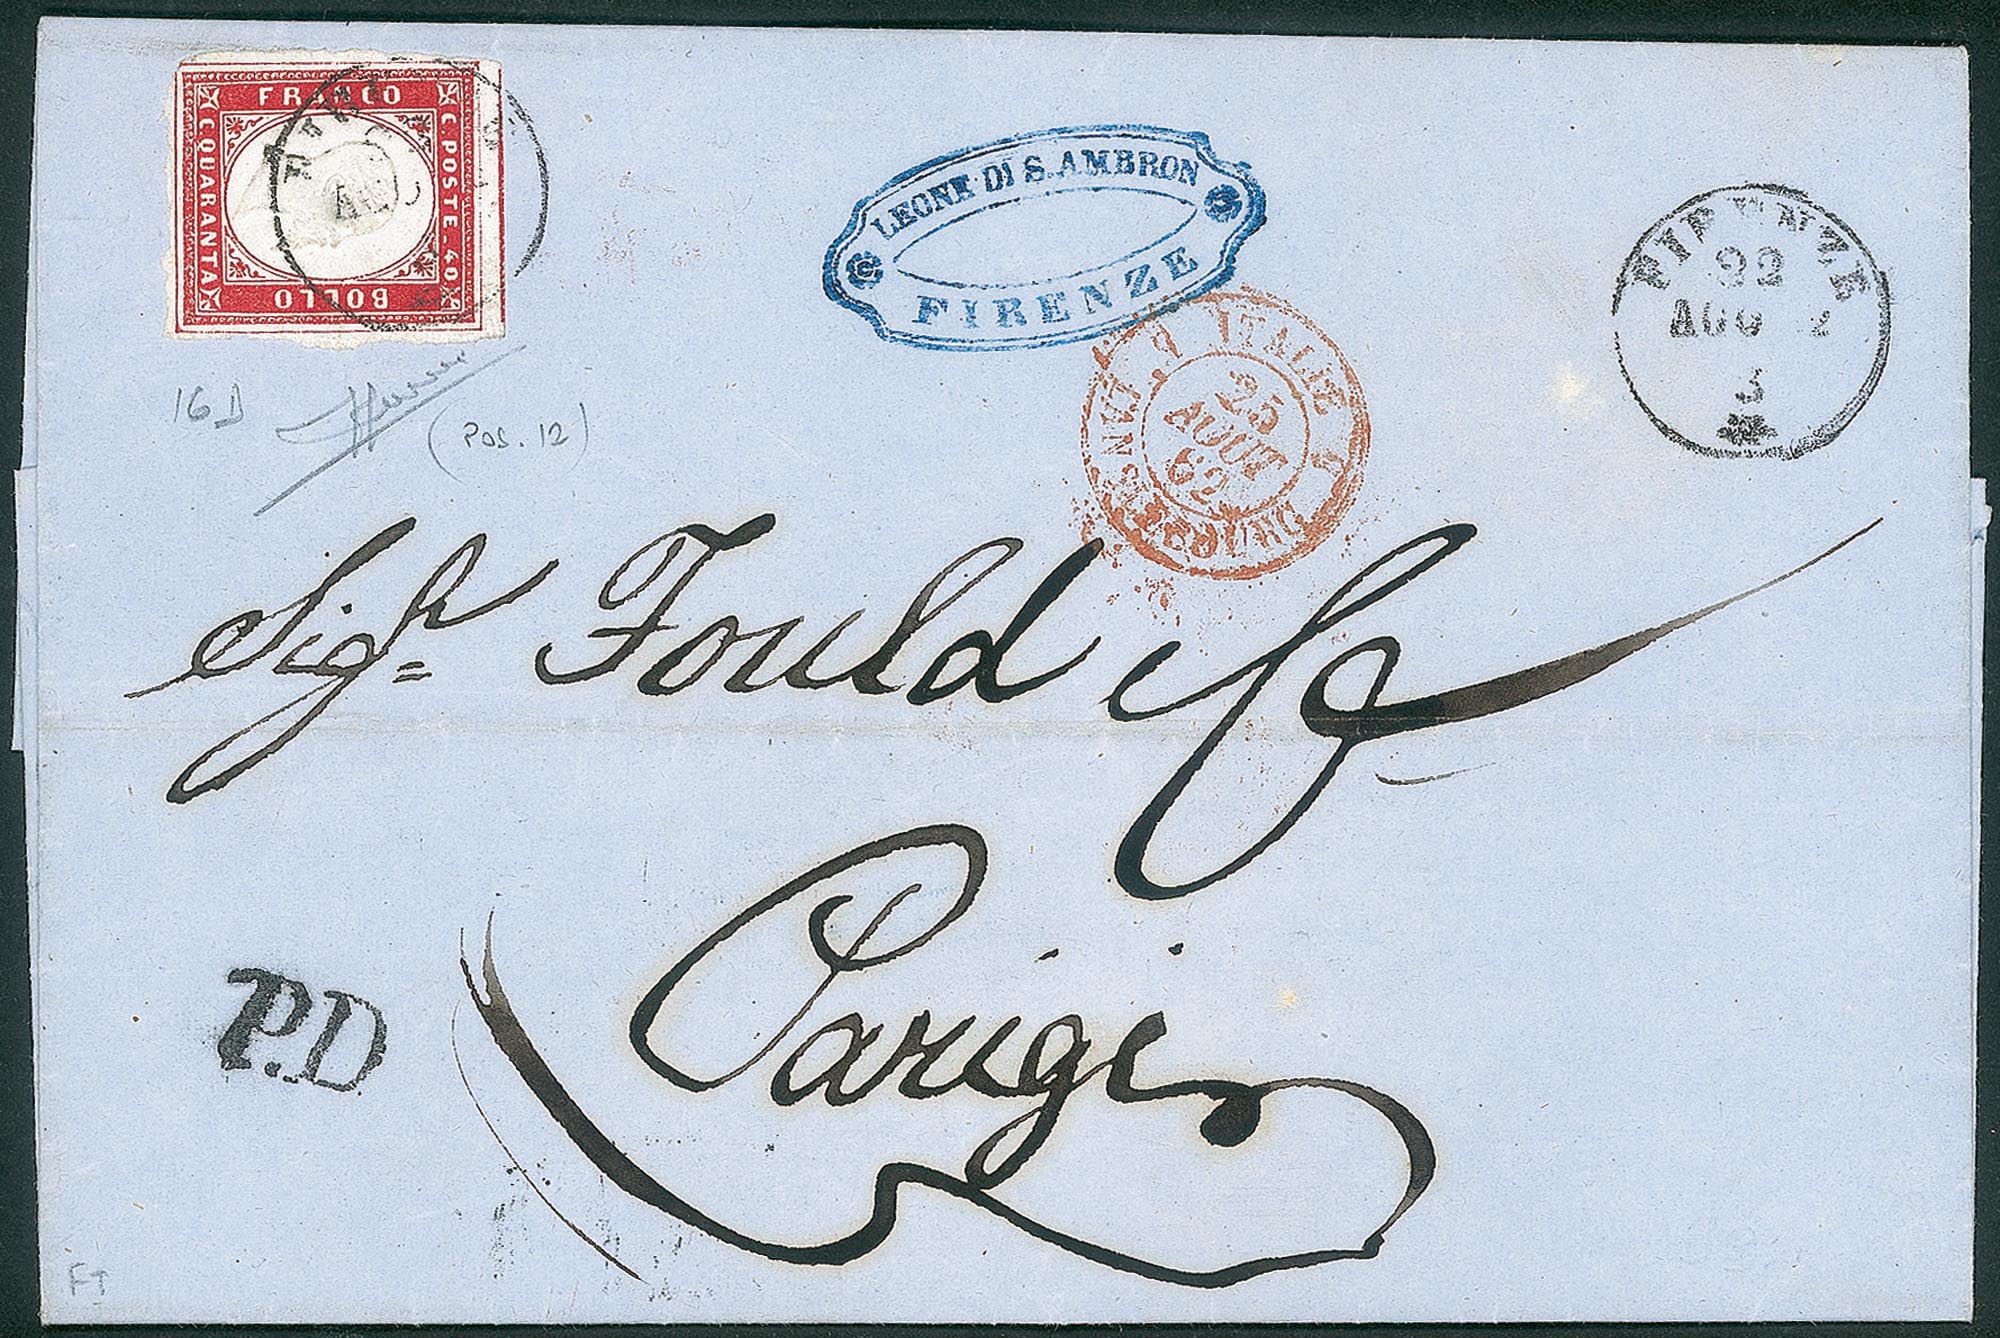 FRANCO
C. POSTE. 40
BOLLO
C. QUARANTA
LEONE DI S. AMBRON
FIRENZE
FIRENZE
22
AGO
3
ITALIE
25
AOUT
62
16D
(POS. 12)
Sigri Fould e C
Parigi
P.D
FT